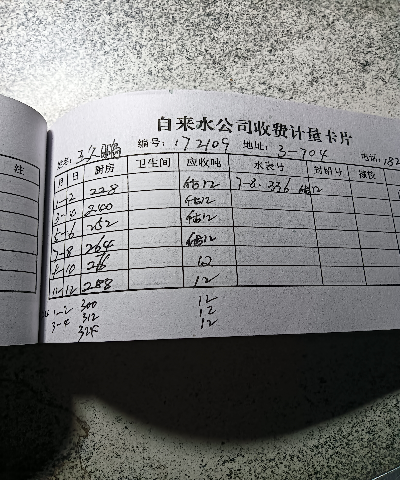 自来水公司收费计量卡片
姓名: 编号: 172109 地址: 3-704 电话: 182
注
月 日 厨房 卫生间 应收吨 水表号 封铅号
1-2 228 估12 7-8. 336 估12
3-4 240 估12
5-6 252 估12
7-8 264 估12
9-10 276 12
11-12 288 12
1-2 300 12
3-4 312 12
324 12